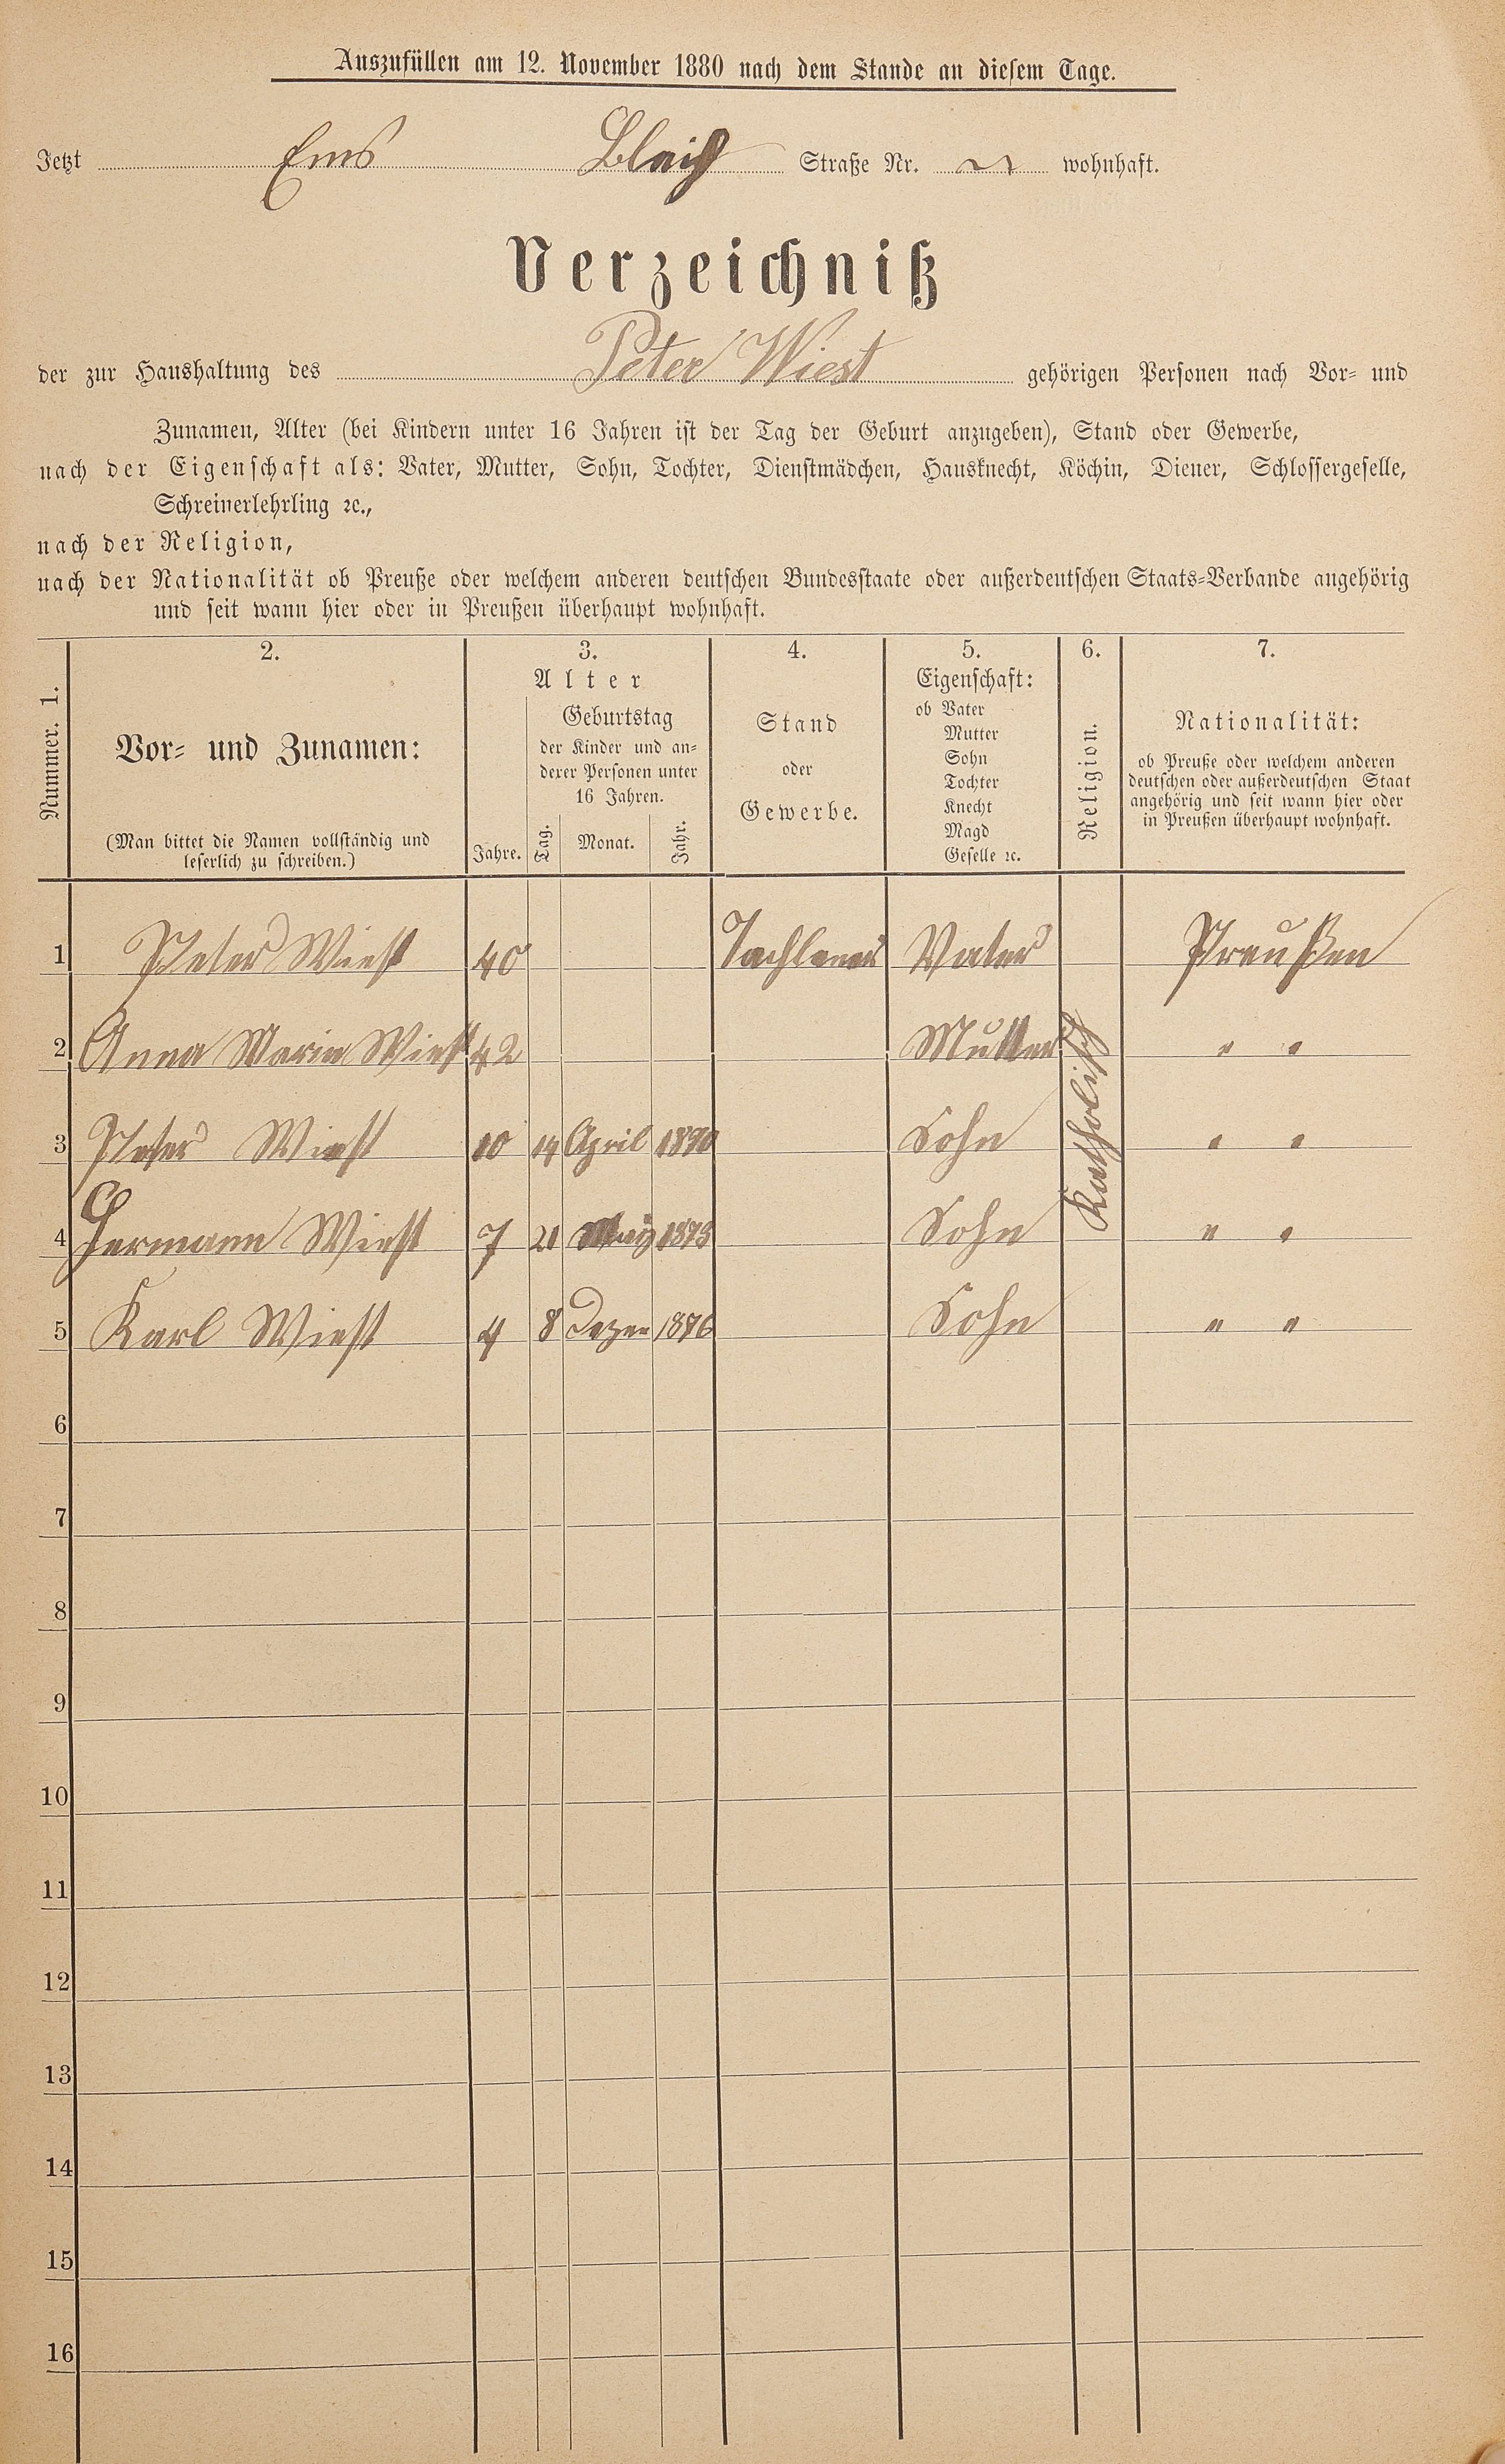 Auszufüllen am 12. November 1880 nach dem Stande an diesem Tage.
Jetzt Ems Bleich Straße Nr. wohnhaft.
Verzeichniß
der zur Haushaltung des Peter Wiest gehörigen Personen nach Vor- und
Zunamen, Alter (bei Kindern unter 16 Jahren ist der Tag der Geburt anzugeben), Stand oder Gewerbe,
nach der Eigenschaft als: Vater, Mutter, Sohn, Tochter, Dienstmädchen, Hausknecht, Köchin, Diener, Schlossergeselle,
Schreinerlehrling ꝛc.,
nach der Religion,
nach der Nationalität ob Preuße oder welchem anderen deutschen Bundesstaate oder außerdeutschen Staats-Verbande angehörig
und seit wann hier oder in Preußen überhaupt wohnhaft.
Nummer. 1.
2.
Vor- und Zunamen:
(Man bittet die Namen vollständig und
leserlich zu schreiben.)
3.
Alter
Jahre.
Geburtstag
der Kinder und an-
derer Personen unter
16 Jahren.
Tag. Monat. Jahr.
4.
Stand
oder
Gewerbe.
5.
Eigenschaft:
ob Vater
Mutter
Sohn
Tochter
Knecht
Magd
Geselle ꝛc.
6.
Religion.
7.
Nationalität:
ob Preuße oder welchem anderen
deutschen oder außerdeutschen Staat
angehörig und seit wann hier oder
in Preußen überhaupt wohnhaft.
1 Peter Wiest 40 Vater Preußen
2 Anna Maria Wiest 42 Mutter " "
Katholisch
3 Peter Wiest 10 14 April 1870 Sohn " "
4 Hermann Wiest 7 21 1873 Sohn " "
5 Karl Wiest 4 8 Dezem 1876 Sohn " "
6
7
8
9
10
11
12
13
14
15
16